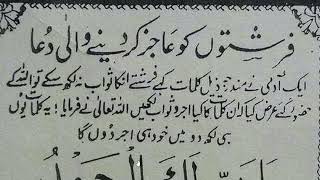 فرشتوں کو عاجز کر دینے والی دعا
ایک آدمی نے مندرجہ ذیل کلمات کہے فرشتے انکا ثواب نہ لکھ سکے تو اللہ کے
حضور عرض کیا کہ ان کلمات کا کیا اجر و ثواب لکھیں اللہ تعالی نے فرمایا یہ کلمات یوں
ہی لکھ دو میں خود ہی اجر دوں گا